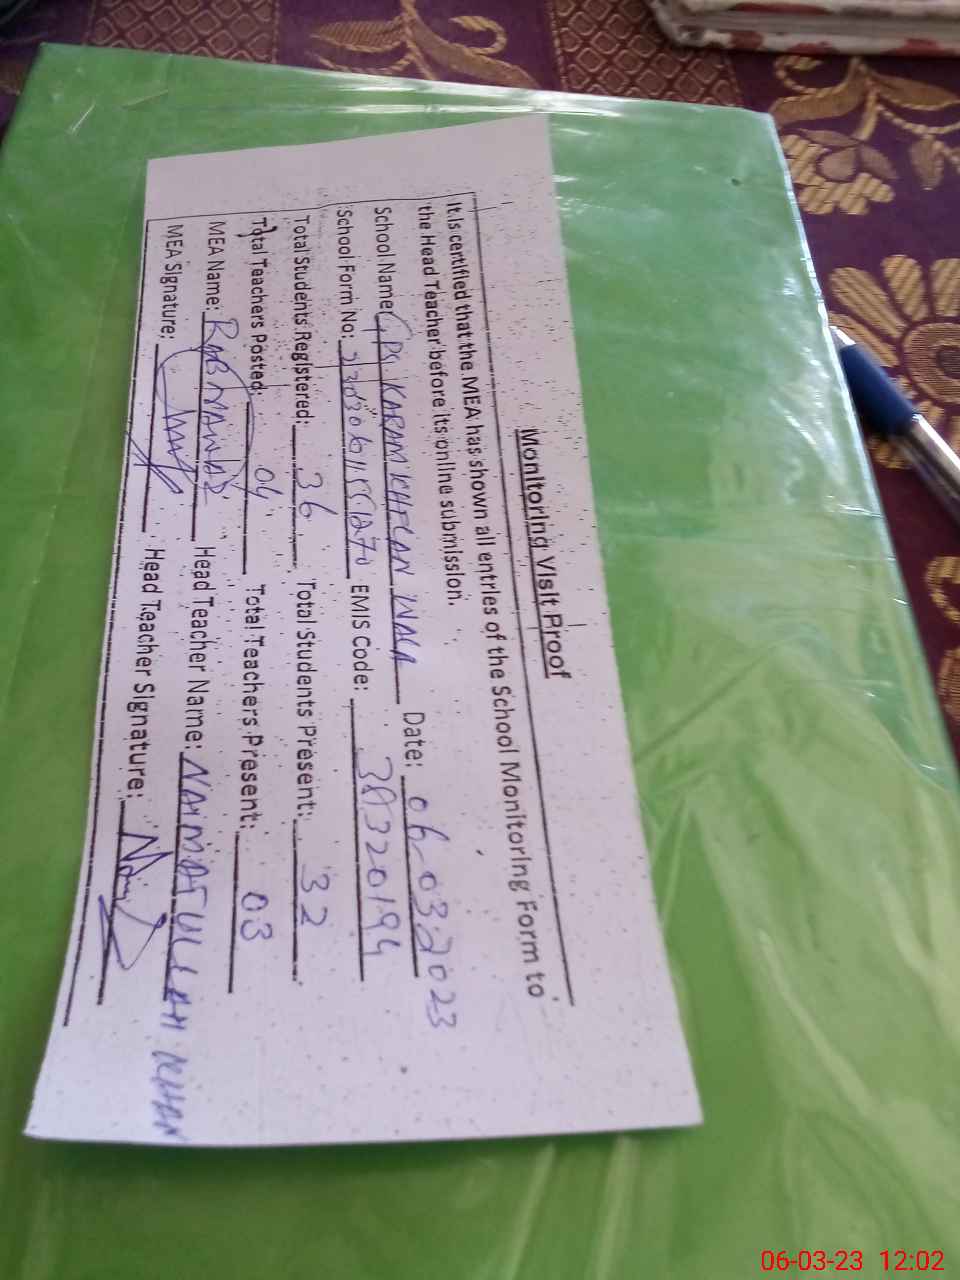 Monitoring Visit Proof
It is certified that the MEA has shown all entries of the School Monitoring Form to
the Head Teacher before its online submission.
School Name: GPS KARAM KHAN WALA Date: 06-03-2023
School Form No: EMIS Code: 38320194
Total Students Registered: 36 Total Students Present: 32
Total Teachers Posted: 04 Total Teachers Present: 03
MEA Name: RAB NAWAZ Head Teacher Name: NAIMATULLAH KHAN
MEA Signature: Head Teacher Signature:
06-03-23 12:02